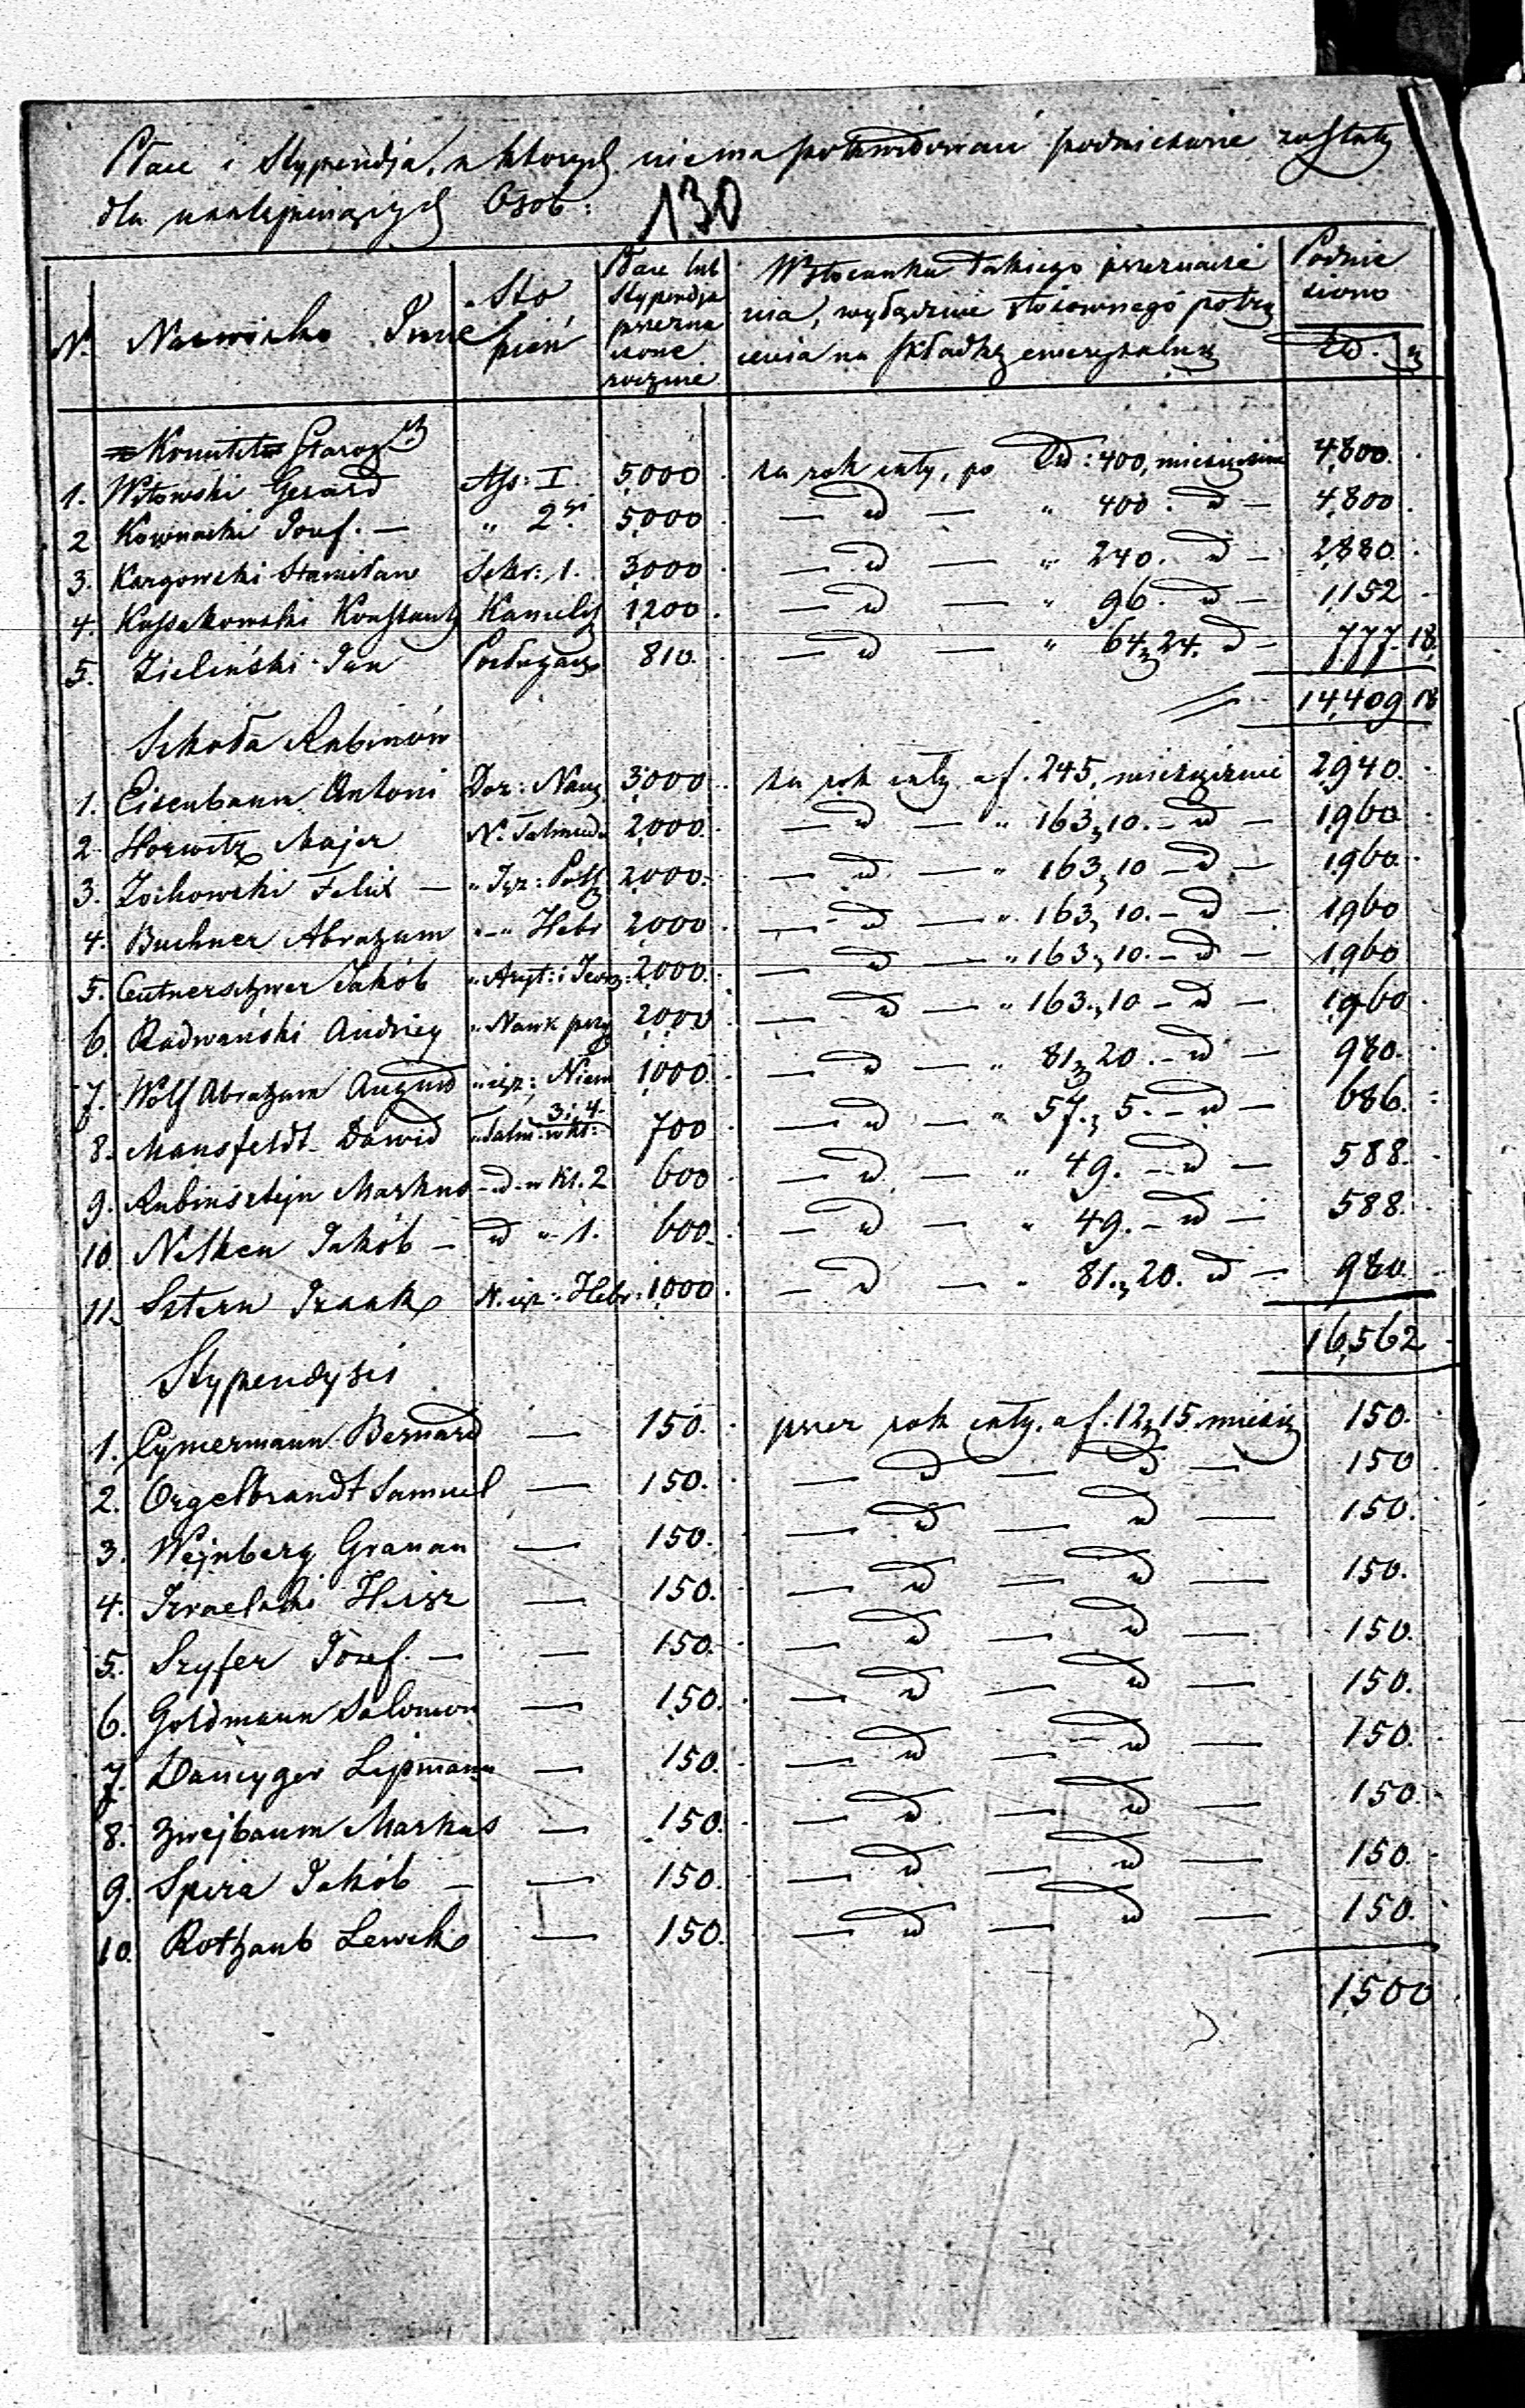 Płace i Stypendja, z których niema pokwitowań podniesione zostały
dla następujących Osób:
130
N. Nazwisko Imie Sto pień Płace lub Stypendja przezna czone rocznie W stosunku takiego przeznacze nia, wybędzine stosownego potrą cenia na składkę emerytalną Podnie siono Zł. g
Komitet Staroz
1. Witowski Gerard Ass: I. 5,000 za rok cały, po Zł: 400, miesięcznie 4,800.
2 Kownacki Jozef. — " 2gi 5,000 — d — " 400. d — 4,800
3. Kargowski Stanisław Sekr: 1. 3,000 — d — " 240. d — 2,880.
4. Kossakowski Konstanty Kancels 1,200 — d — " 96. d — 1,152
5. Zieliński Jan Posługacz 810. — d — " 64 g 24. d — 777. 18.
14,409 18
Szkoła Rabinów
1. Eisenbaum Antoni Doz: Nauz 3,000 za rok cały af. 245, miesięcznie 2,940.
2. Horwitz Majer N. Talmudu 2,000. — d — " 163 g 10. — d — 1,960
3. Zochowski Felix — " Jęz: Pols 2,000. — d — " 163 g 10 — d — 1,960.
4. Buchner Abraham " — " Hebr 2,000 — d — " 163 g 10. — d — 1,960
5. Centnerschwer Jakób " Aryt: i Jeog: 2,000. — d — " 163 g 10. — d — 1,960
6. Radwański Andrzey " Nauk przy 2,000 — d — " 163 g 10 — d — 1,960
7. Wolf Abraham August " ięz: Niem 1,000. — d — " 81 g 20. — d — 980.
8. Mansfeldt Dawid " Talm: w kl: 3 i 4. 700 — d — " 57. g 5. — d — 686.
9. Rubinsztejn Markus — d — w Kl. 2 600 — d — " 49. — d — 588.
10 Nelken Jakób — d " 1. 600. — d — " 49. — d — 588.
11. Sztern Izaak N. ięz: Hebr: 1,000 — d — " 81. g 20. d — 980.
16,562
Stypendyści
1. Cymermann Bernard — 150. przez rok cały. af. 12 g 15. miesię 150.
2. Orgelbrandt Samuel — 150. — d — d — 150
3. Wejnberg Granan — 150. — d — d — 150.
4. Izraelski Hersz — 150. — d — d — 150.
5. Szyfer Józef. — — 150. — d — d — 150.
6. Goldmann Salomon — 150. — d — d — 150.
7. Dancyger Lipmann — 150. — d — d — 150.
8. Zwejbaum Markus — 150. — d — d — 150.
9. Spira Jakób — — 150. — d — d — 150.
10. Rothaub Lewek — 150. — d — d — 150.
1,500